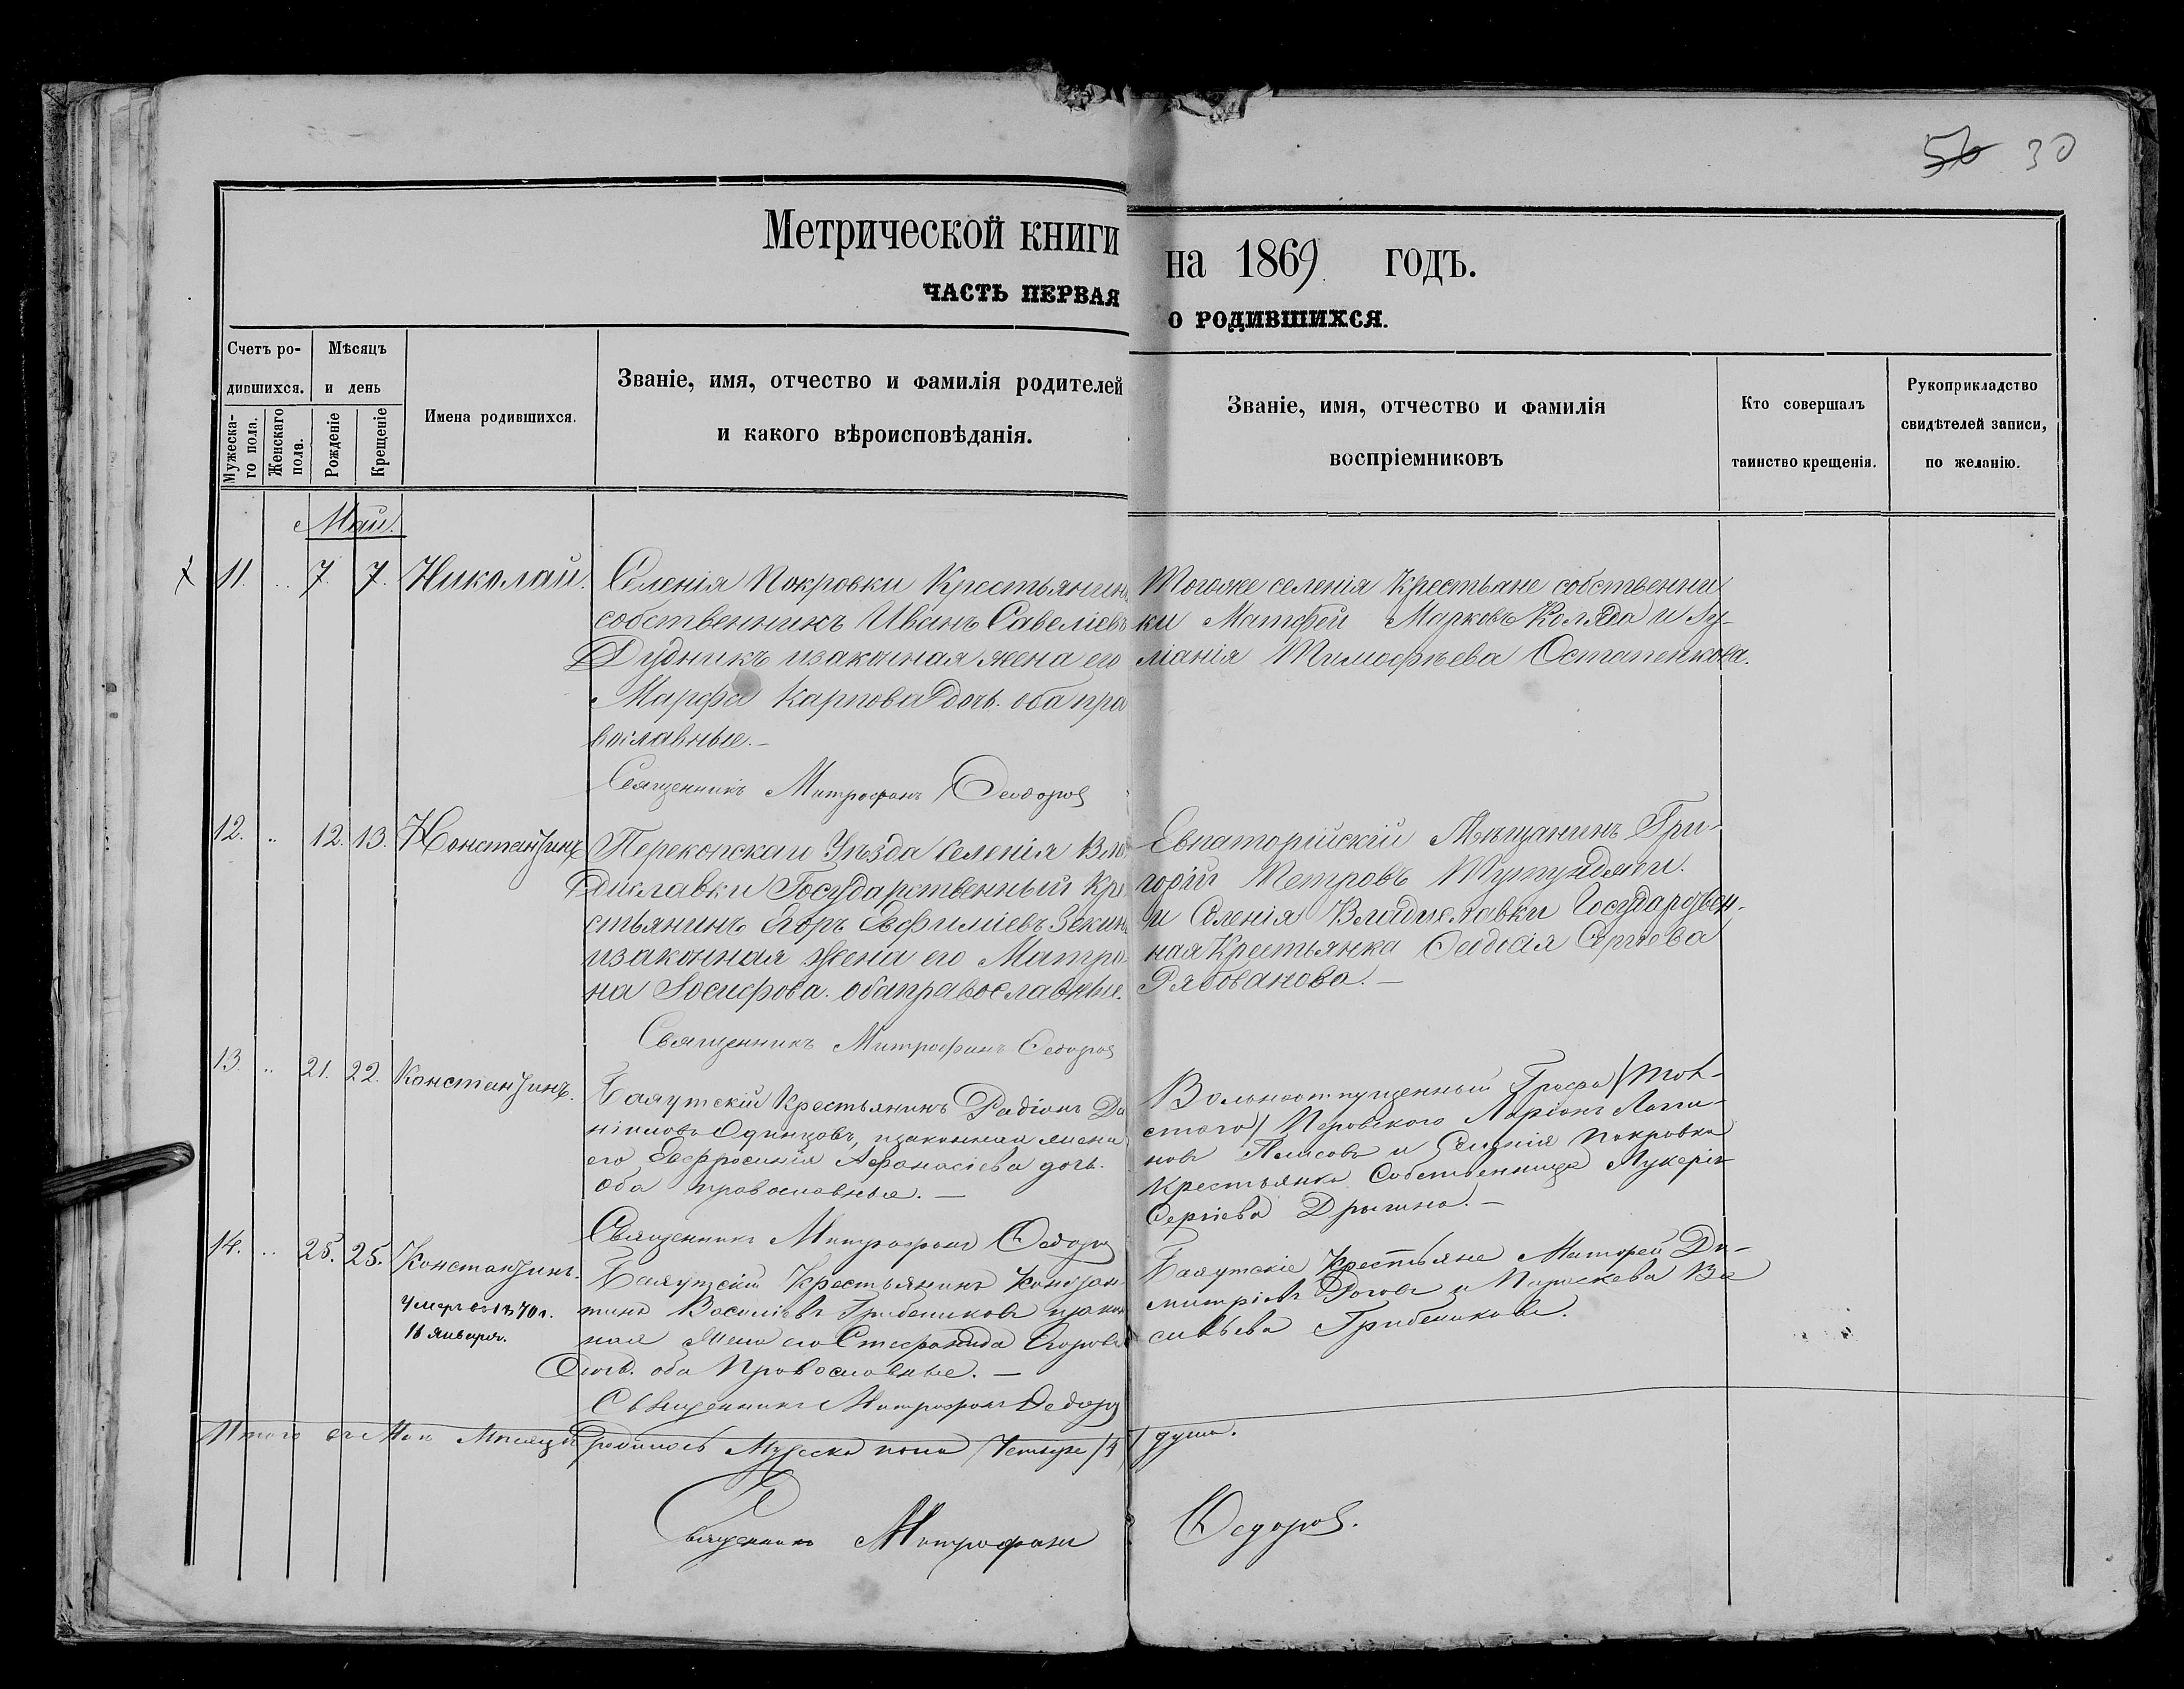 56 30
Метрической книги на 1869 годъ.
ЧАСТЬ ПЕРВАЯ О РОДИВШИХСЯ.
Счетъ ро-
дившихся.
Мужеска-
го пола.
Женскаго
пола.
Мѣсяцъ
и день
Рожденіе
Крещеніе
Имена родившихся.
Званіе, имя, отчество и фамилія родителей
и какого вѣроисповѣданія.
Званіе, имя, отчество и фамилія
воспріемниковъ
Кто совершалъ
таинство крещенія.
Рукоприкладство
свидѣтелей записи,
по желанію.
Май.
11. 7. 7. Николай.
Селенія Покровки Крестьянинъ
собственникъ Иванъ Савеліевъ
Дудникъ изаконная жена его
Марфа Карпова дочь. оба пра
вославные.
Священникъ Митрофанъ Ѳеодоровъ
Тогоже селенія Крестьане собственни
ки Матфей Марковъ Коляда и Лу-
ліанія Тимофѣева Остапенкова.
12. 12. 13. Константинъ
Перекопскаго Уѣзда Селенія Вла
диславки Государственный Кре
стьянинъ Егоръ Евфиміевъ Зекинъ
изаконная жена его Матро
на Іосифова. оба православные.
Священникъ Митрофанъ Ѳедоровъ
Евпаторійскій Мѣщанинъ Гри-
горій Петровъ
и Селенія Владиславки Государствен-
ная Крестьянка Ѳеодосія Сергѣева
Рябованова.
13. 21. 22. Константинъ.
Баяутскій Крестьянинъ Радіонъ Да
ніиловъ Одинцовъ, изаконная жена
его Евфросинія Афанасіева дочь.
Оба православные.
Священникъ Митрофанъ Ѳедоровъ
Вольноотпущенный Графа /Тол-
стого/ Перовского Ларіонъ Логги-
новъ и Селенія Покровки
Крестьянка Собственница Лукерія
Сергіева Дрыгина.
14. 25. 25. Константинъ.
Умеръ въ 1870 г.
16 Января.
Баяутскій Крестьянинъ Констан
тинъ Василіевъ Грибениковъ изакон
ная Жена его Стефанида Егорова
Дочь. оба Православные.
Священникъ Митрофанъ Ѳедоровъ
Баяутскіе Крестьяне Матфей Ди-
митріевъ и Параскева Ва
сильева Грибеникова.
Итого въ Маѣ Мѣсяцѣ родилось Мужеска пола Четыре /4/ души.
Священникъ Митрофанъ Ѳедоровъ.